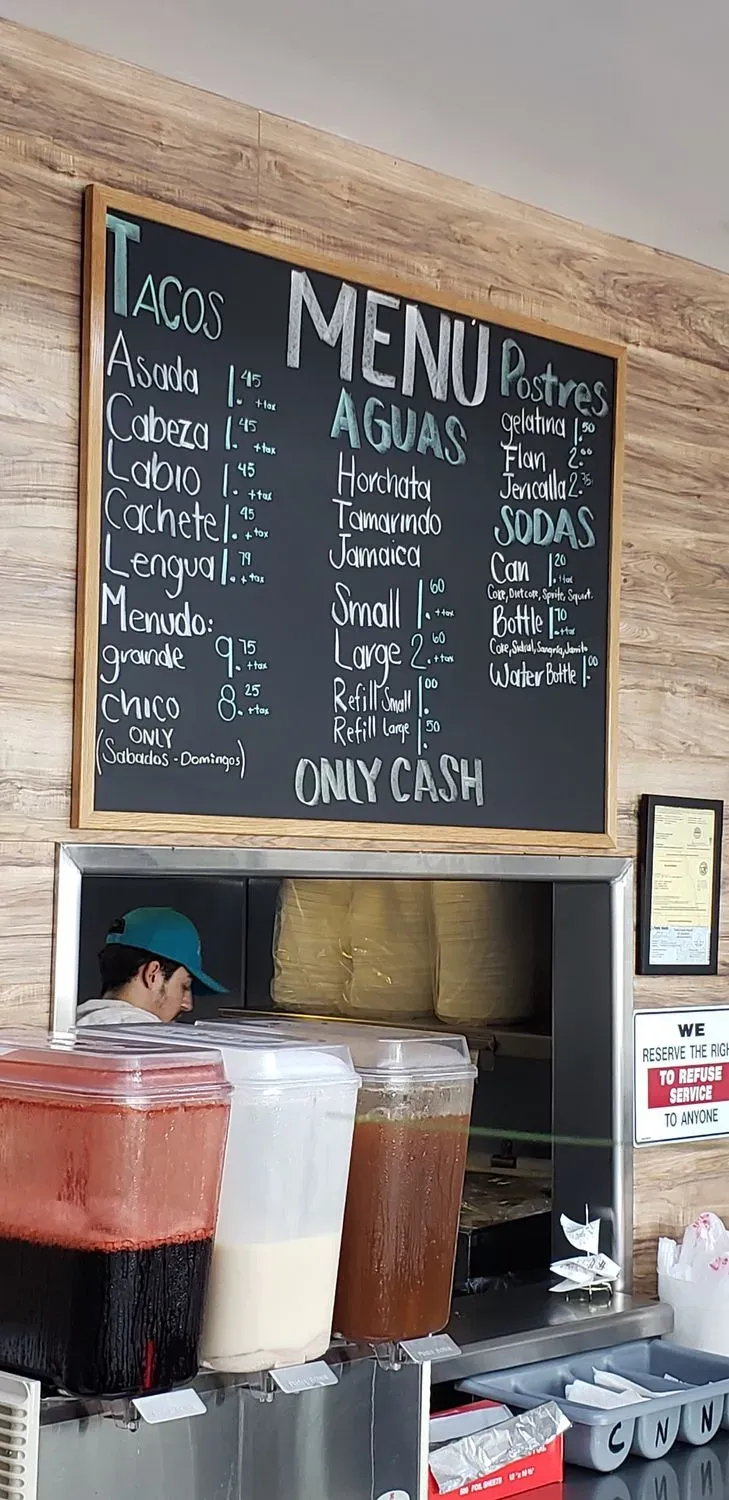 MENÚ
TACOS
Asada 1.45 +tax
Cabeza 1.45 +tax
Labio 1.45 +tax
Cachete 1.45 +tax
Lengua 1.79 +tax
Menudo:
grande 9.75 +tax
chico 8.25 +tax
ONLY
(Sabados - Domingos)
AGUAS
Horchata
Tamarindo
Jamaica
Small 1.60 +tax
Large 2.60 +tax
Refill Small 1.00
Refill Large 1.50
ONLY CASH
Postres
gelatina 1.50
Flan 2.00
Jericalla 2.75
SODAS
Can 1.20 +tax
Coke, Diet coke, Sprite, Squirt.
Bottle 1.70 +tax
Coke, Sidral, Sangria, Jarrito
Water Bottle 1.00
WE
RESERVE THE RIGH
TO REFUSE
SERVICE
TO ANYONE
C N N